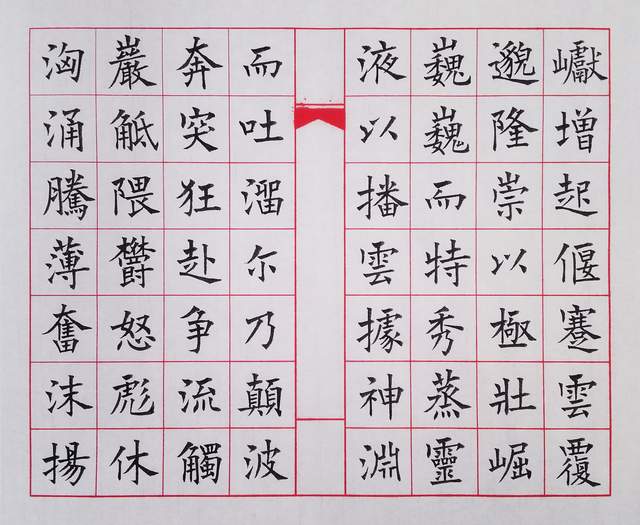 巘增起偃蹇雲覆
邈隆崇以極壯崛
巍巍而特秀蒸靈
液以播雲據神淵
而吐溜尔乃顛波
奔突狂赴争流觸
巖觝隈鬱怒彪休
洶涌騰薄奮沫揚